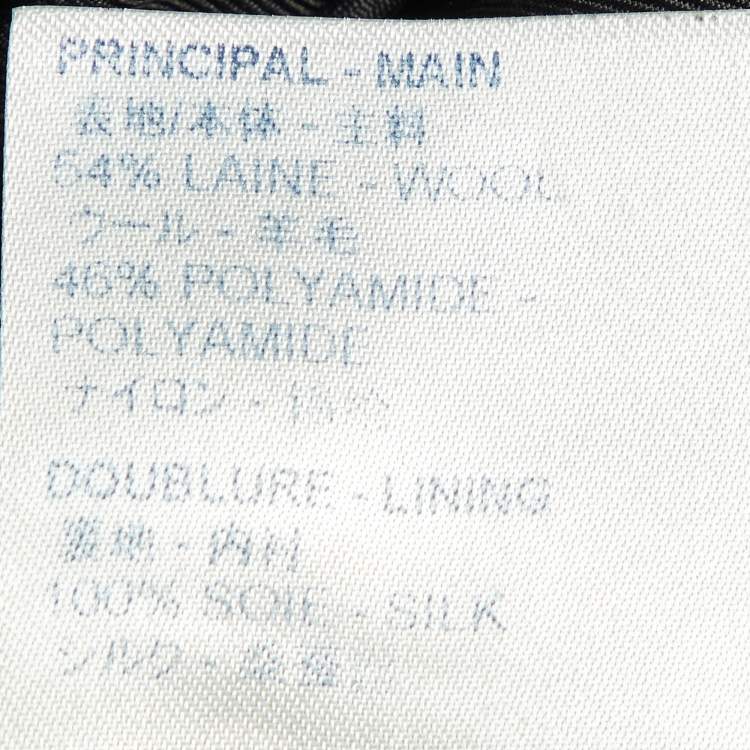 PRINCIPAL - MAIN
表地/本体 - 主料
54% LAINE - WOOL
ウール - 羊毛
46% POLYAMIDE -
POLYAMIDE
ナイロン - 锦纶
DOUBLURE - LINING
裏地 - 内衬
100% SOIE - SILK
シルク - 桑蚕丝